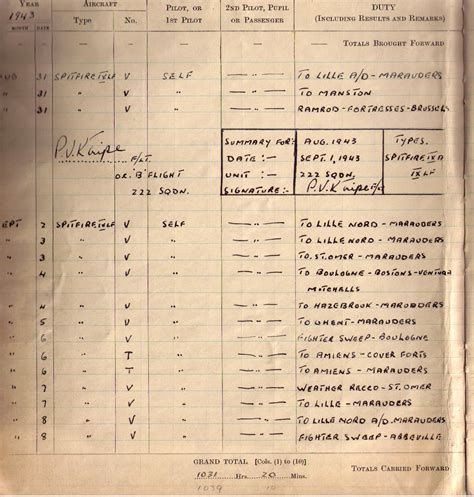 YEAR AIRCRAFT PILOT, OR 2ND PILOT, PUPIL DUTY
1943 Type No. 1ST PILOT OR PASSENGER (INCLUDING RESULTS AND REMARKS)
MONTH DATE
— — — — — TOTALS BROUGHT FORWARD
AUG 31 SPITFIRE IX LF V SELF —"— TO LILLE A/D - MARAUDERS
" 31 " V " —"— TO MANSTON
" 31 " V " —"— RAMROD - FORTRESSES - BRUSSELS
SUMMARY FOR:- AUG. 1943 TYPES.
P.V.Kaipe F/LT. DATE :- SEPT. 1, 1943 SPITFIRE IX A
O/C 'B' FLIGHT UNIT :- 222 SQDN. IX LF
222 SQDN. SIGNATURE:- P.V.Kaipe F/LT
SEPT 2 SPITFIRE IX LF V SELF —"— TO LILLE NORD - MARAUDERS
" 3 " V " —"— TO LILLE NORD - MARAUDERS
" 3 " V " —"— TO ST. OMER - MARAUDERS
" 4 " V " —"— TO BOULOGNE - BOSTONS - VENTURA
MITCHELLS
" 4 " V " —"— TO HAZEBROOK - MARAUDERS
" 5 " V " —"— TO GHENT - MARAUDERS
" 6 " V " —"— FIGHTER SWEEP - BOULOGNE
" 6 " T " —"— TO AMIENS - COVER FORTS
" 6 " T " —"— TO AMIENS - MARAUDERS
" 7 " V " —"— WEATHER RECCO - ST. OMER
" 7 " V " —"— TO LILLE - MARAUDERS
" 8 " V " —"— TO LILLE NORD A/D. MARAUDERS
" 8 " V " —"— FIGHTER SWEEP - ABBEVILLE
GRAND TOTAL [Cols. (1) to (10)]
1031 Hrs. 20 Mins. TOTALS CARRIED FORWARD
1039 10